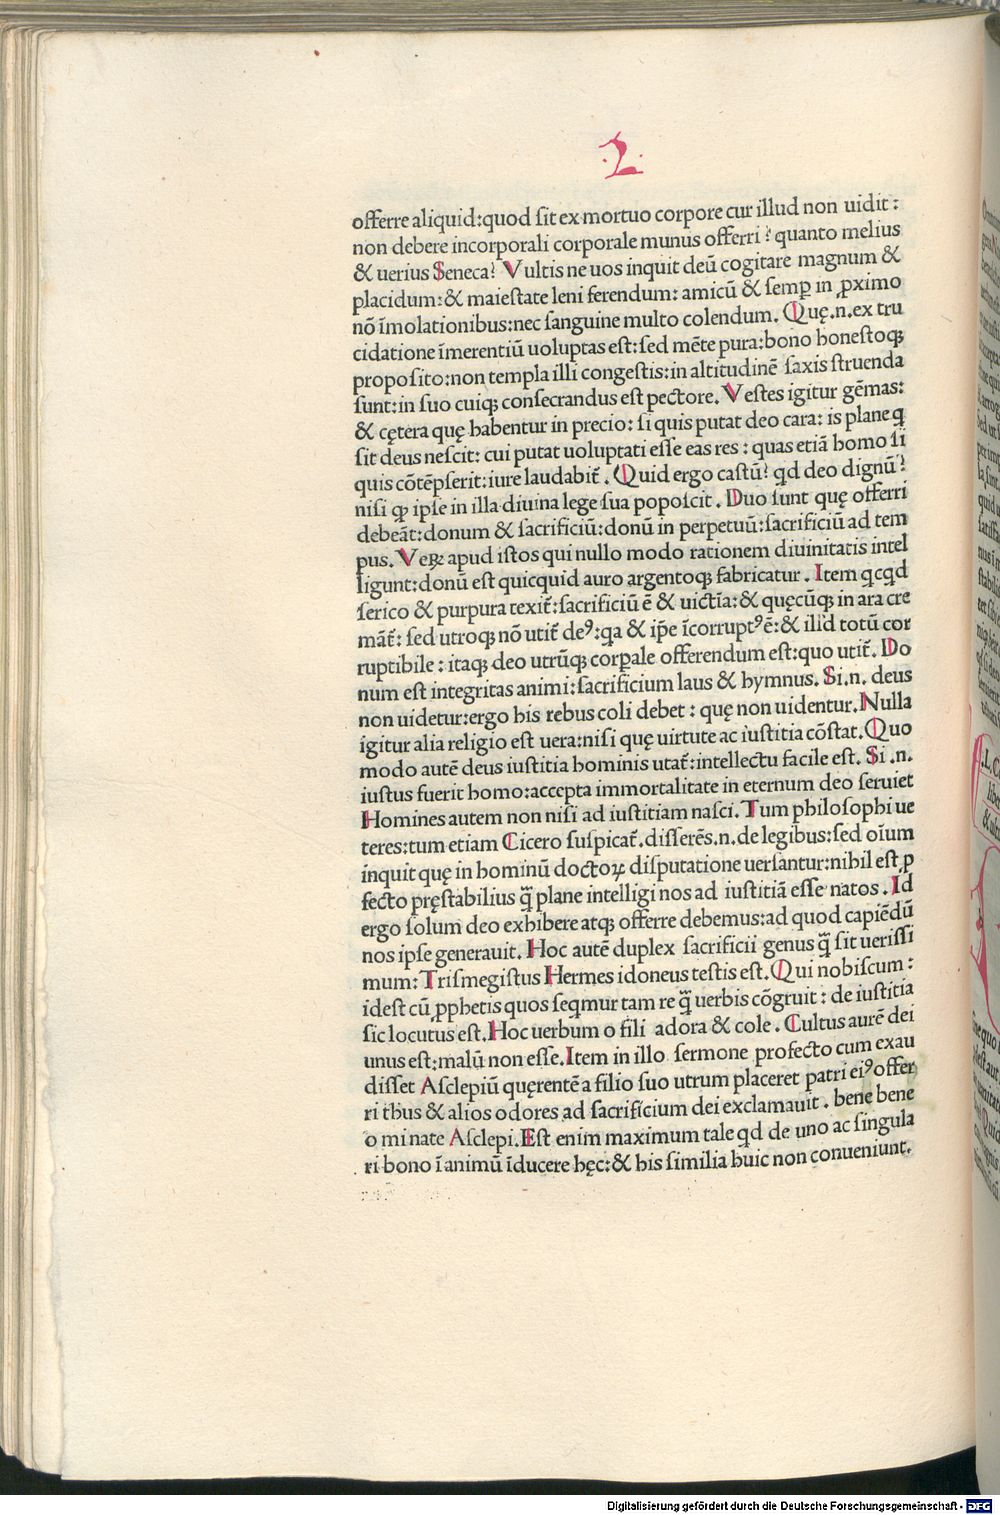 .2.
offerre aliquid:quod sit ex mortuo corpore cur illud non uidit:
non debere incorporali corporale munus offerri? quanto melius
& uerius Seneca? Vultis ne uos inquit deū cogitare magnum &
placidum:& maiestate leni ferendum: amicū & semꝑ in ꝓximo
nō īmolationibus:nec sanguine multo colendum. Quę.n.ex tru
cidatione īmerentiū uoluptas est:sed mēte pura:bono honestoqꝫ
proposito:non templa illi congestis:in altitudinē saxis struenda
sunt:in suo cuiqꝫ consecrandus est pectore. Vestes igitur gēmas:
& cętera quę habentur in precio: si quis putat deo cara: is plane ꝗ
sit deus nescit: cui putat uoluptati esse eas res: quas etiā homo si
quis cōtēpserit:iure laudabit̄. Quid ergo castū? ꝗd deo dignū?
nisi ꝙ ipse in illa diuina lege sua poposcit. Duo sunt quę offerri
debeāt:donum & sacrificiū:donū in perpetuū:sacrificiū ad tem
pus. Veꝝ apud istos qui nullo modo rationem diuinitatis intel
ligunt:donū est quicquid auro argentoqꝫ fabricatur. Item ꝗcꝗd
serico & purpura texit̄:sacrificiū ē & uictīa:& quęcūqꝫ in ara cre
māt̄: sed utroqꝫ nō utit̄ deꝰ:ꝗa & ip̄e īcorruptꝰ ē:& illd totū cor
ruptibile: itaqꝫ deo utrūqꝫ corꝑale offerendum est:quo utit̄. Do
num est integritas animi:sacrificium laus & hymnus. Si.n. deus
non uidetur:ergo his rebus coli debet: quę non uidentur. Nulla
igitur alia religio est uera:nisi quę uirtute ac iustitia cōstat. Quo
modo autē deus iustitia hominis utat̄:intellectu facile est. Si .n.
iustus fuerit homo:accepta immortalitate in eternum deo seruiet
Homines autem non nisi ad iustitiam nasci. Tum philosophi ue
teres:tum etiam Cicero suspicat̄.disserēs.n.de legibus:sed oīum
inquit quę in hominū doctoꝝ disputatione uersantur:nihil est ꝓ
fecto pręstabilius q̄̄ plane intelligi nos ad iustitiā esse natos. Id
ergo solum deo exhibere atqꝫ offerre debemus:ad quod capiēdū
nos ipse generauit. Hoc autē duplex sacrificii genus q̄̄ sit uerissi
mum: Trismegistus Hermes idoneus testis est. Qui nobiscum:
idest cū ꝓphetis quos seqmur tam re q̄̄ uerbis cōgruit: de iustitia
sic locutus est. Hoc uerbum o fili adora & cole. Cultus aurē dei
unus est:malū non esse. Item in illo sermone profecto cum exau
disset Asclepiū quęrentē a filio suo utrum placeret patri eiꝰ offer
ri thus & alios odores ad sacrificium dei exclamauit. bene bene
o mi nate Asclepi. Est enim maximum tale ꝗd de uno ac singula
ri bono ī animū īducere hęc:& his similia huic non conueniunt.
Digitalisierung gefördert durch die Deutsche Forschungsgemeinschaft - DFG